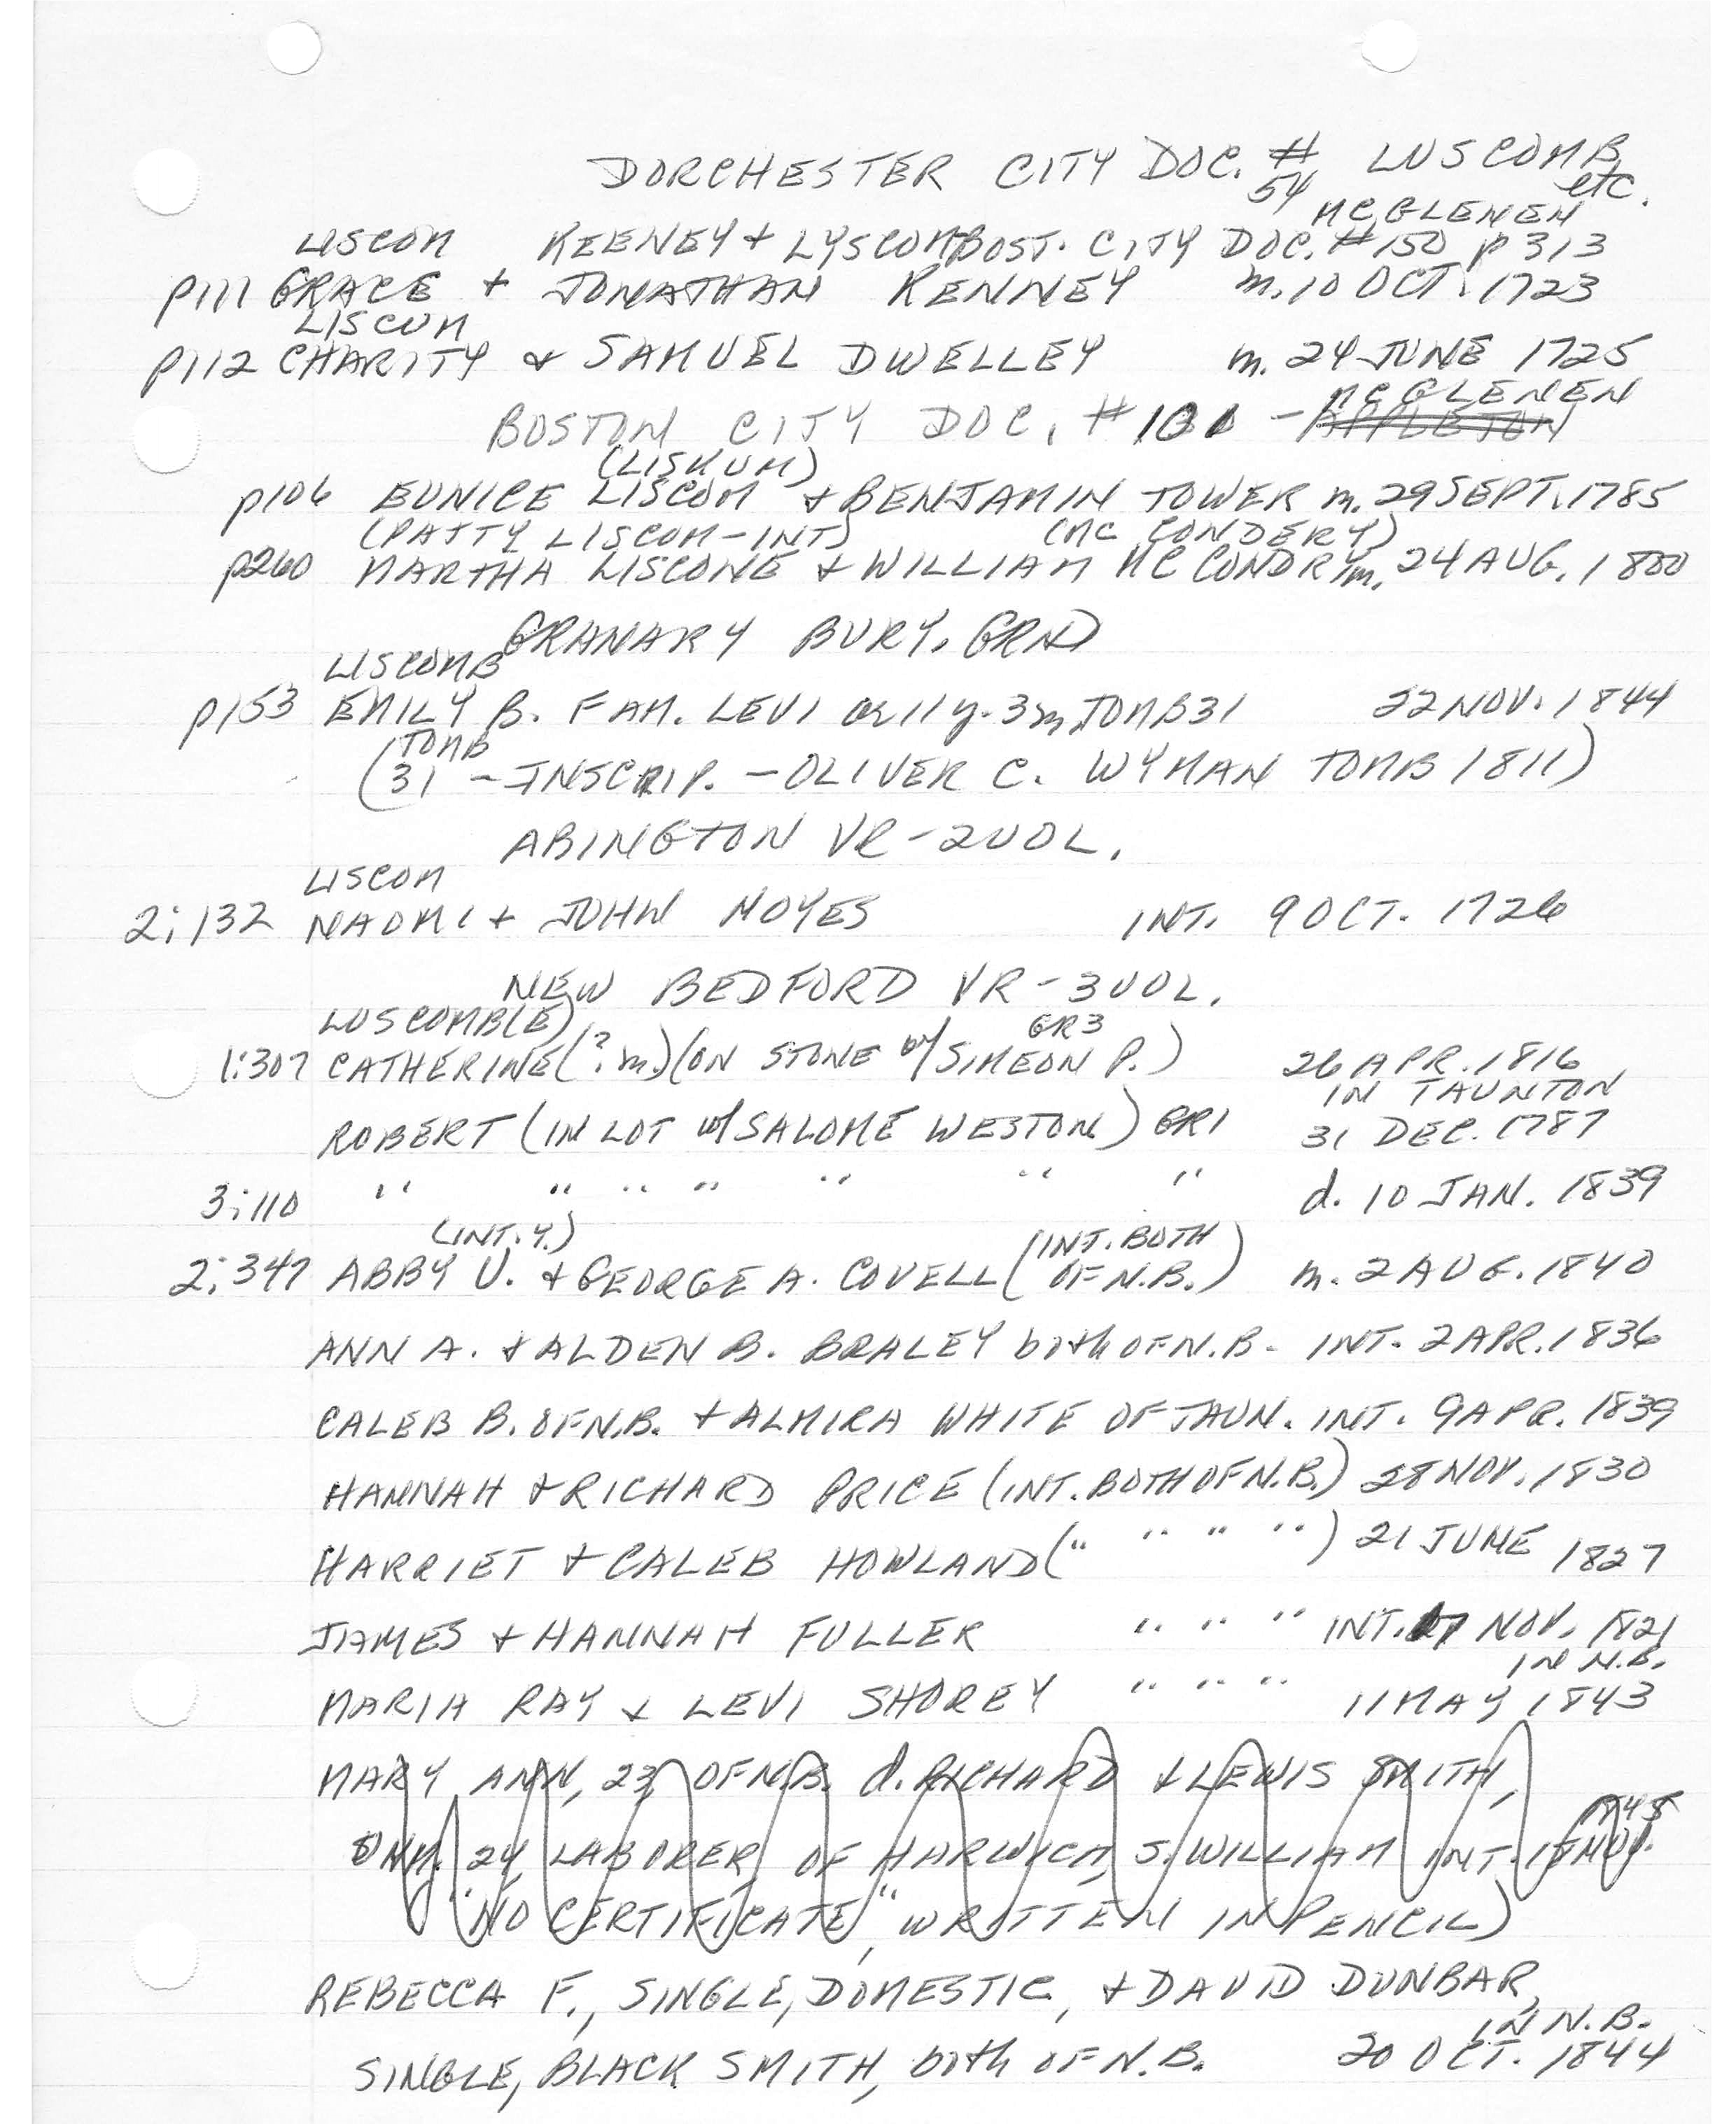 DORCHESTER CITY DOC. # LUSCOMB
54 etc.
MCGLENEN
LISCOM KEENEY + LYSCOM BOST. CITY DOC. #150 p 313
p111 GRACE + JONATHAN KENNEY m. 10 OCT. 1723
LISCUM
p112 CHARITY & SAMUEL DWELLEY m. 24 JUNE 1725
MCGLENEN
BOSTON CITY DOC. #101 - APPLETON
(LISKUM)
p106 EUNICE LISCOM + BENJAMIN TOWER m. 29 SEPT. 1785
(PATTY LISCOM-INT) (MC CONDERY)
p260 MARTHA LISCONE + WILLIAM MC CONDRY m. 24 AUG. 1800
GRANARY BURY. GRND
LISCOMB
p153 EMILY B. FAM. LEVI 11y. 3m, TOMB 31 22 NOV. 1844
TOMB
(31 - INSCRIP. - OLIVER C. WYMAN TOMB 1811)
ABINGTON VR - 2VOL.
LISCOM
2:132 NAOMI + JOHN NOYES INT. 9 OCT. 1726
NEW BEDFORD VR - 3VOL.
LUSCOMB(E) GR3
1:307 CATHERINE (? m.) (ON STONE w/ SIMEON P.) 26 APR. 1816
IN TAUNTON
ROBERT (IN LOT w/ SALOME WESTON) GR1 31 DEC. 1787
3:110 " " " " " " " d. 10 JAN. 1839
(INT. Y.) (INT. BOTH
2:347 ABBY U. + GEORGE A. COVELL OF N.B.) m. 2 AUG. 1840
ANN A. + ALDEN B. BRALEY both OF N.B. INT. 2 APR. 1836
CALEB B. OF N.B. + ALMIRA WHITE OF TAUN. INT. 9 APR. 1839
HANNAH + RICHARD PRICE (INT. BOTH OF N.B.) 28 NOV. 1830
HARRIET + CALEB HOWLAND (" " " ") 21 JUNE 1827
JAMES + HANNAH FULLER " " " INT. NOV. 1821
IN N.B.
MARIA RAY + LEVI SHOREY " " " 11 MAY 1843
MARY ANN, 23, OF N.B. d. RICHARD + LEWIS SMITH,
1848
UNM. 24, LABORER, OF HARWICH, S. WILLIAM INT. 18 NOV.
("NO CERTIFICATE", WRITTEN IN PENCIL)
REBECCA F., SINGLE, DOMESTIC, + DAVID DUNBAR,
IN N.B.
SINGLE, BLACK SMITH, both OF N.B. 20 OCT. 1844